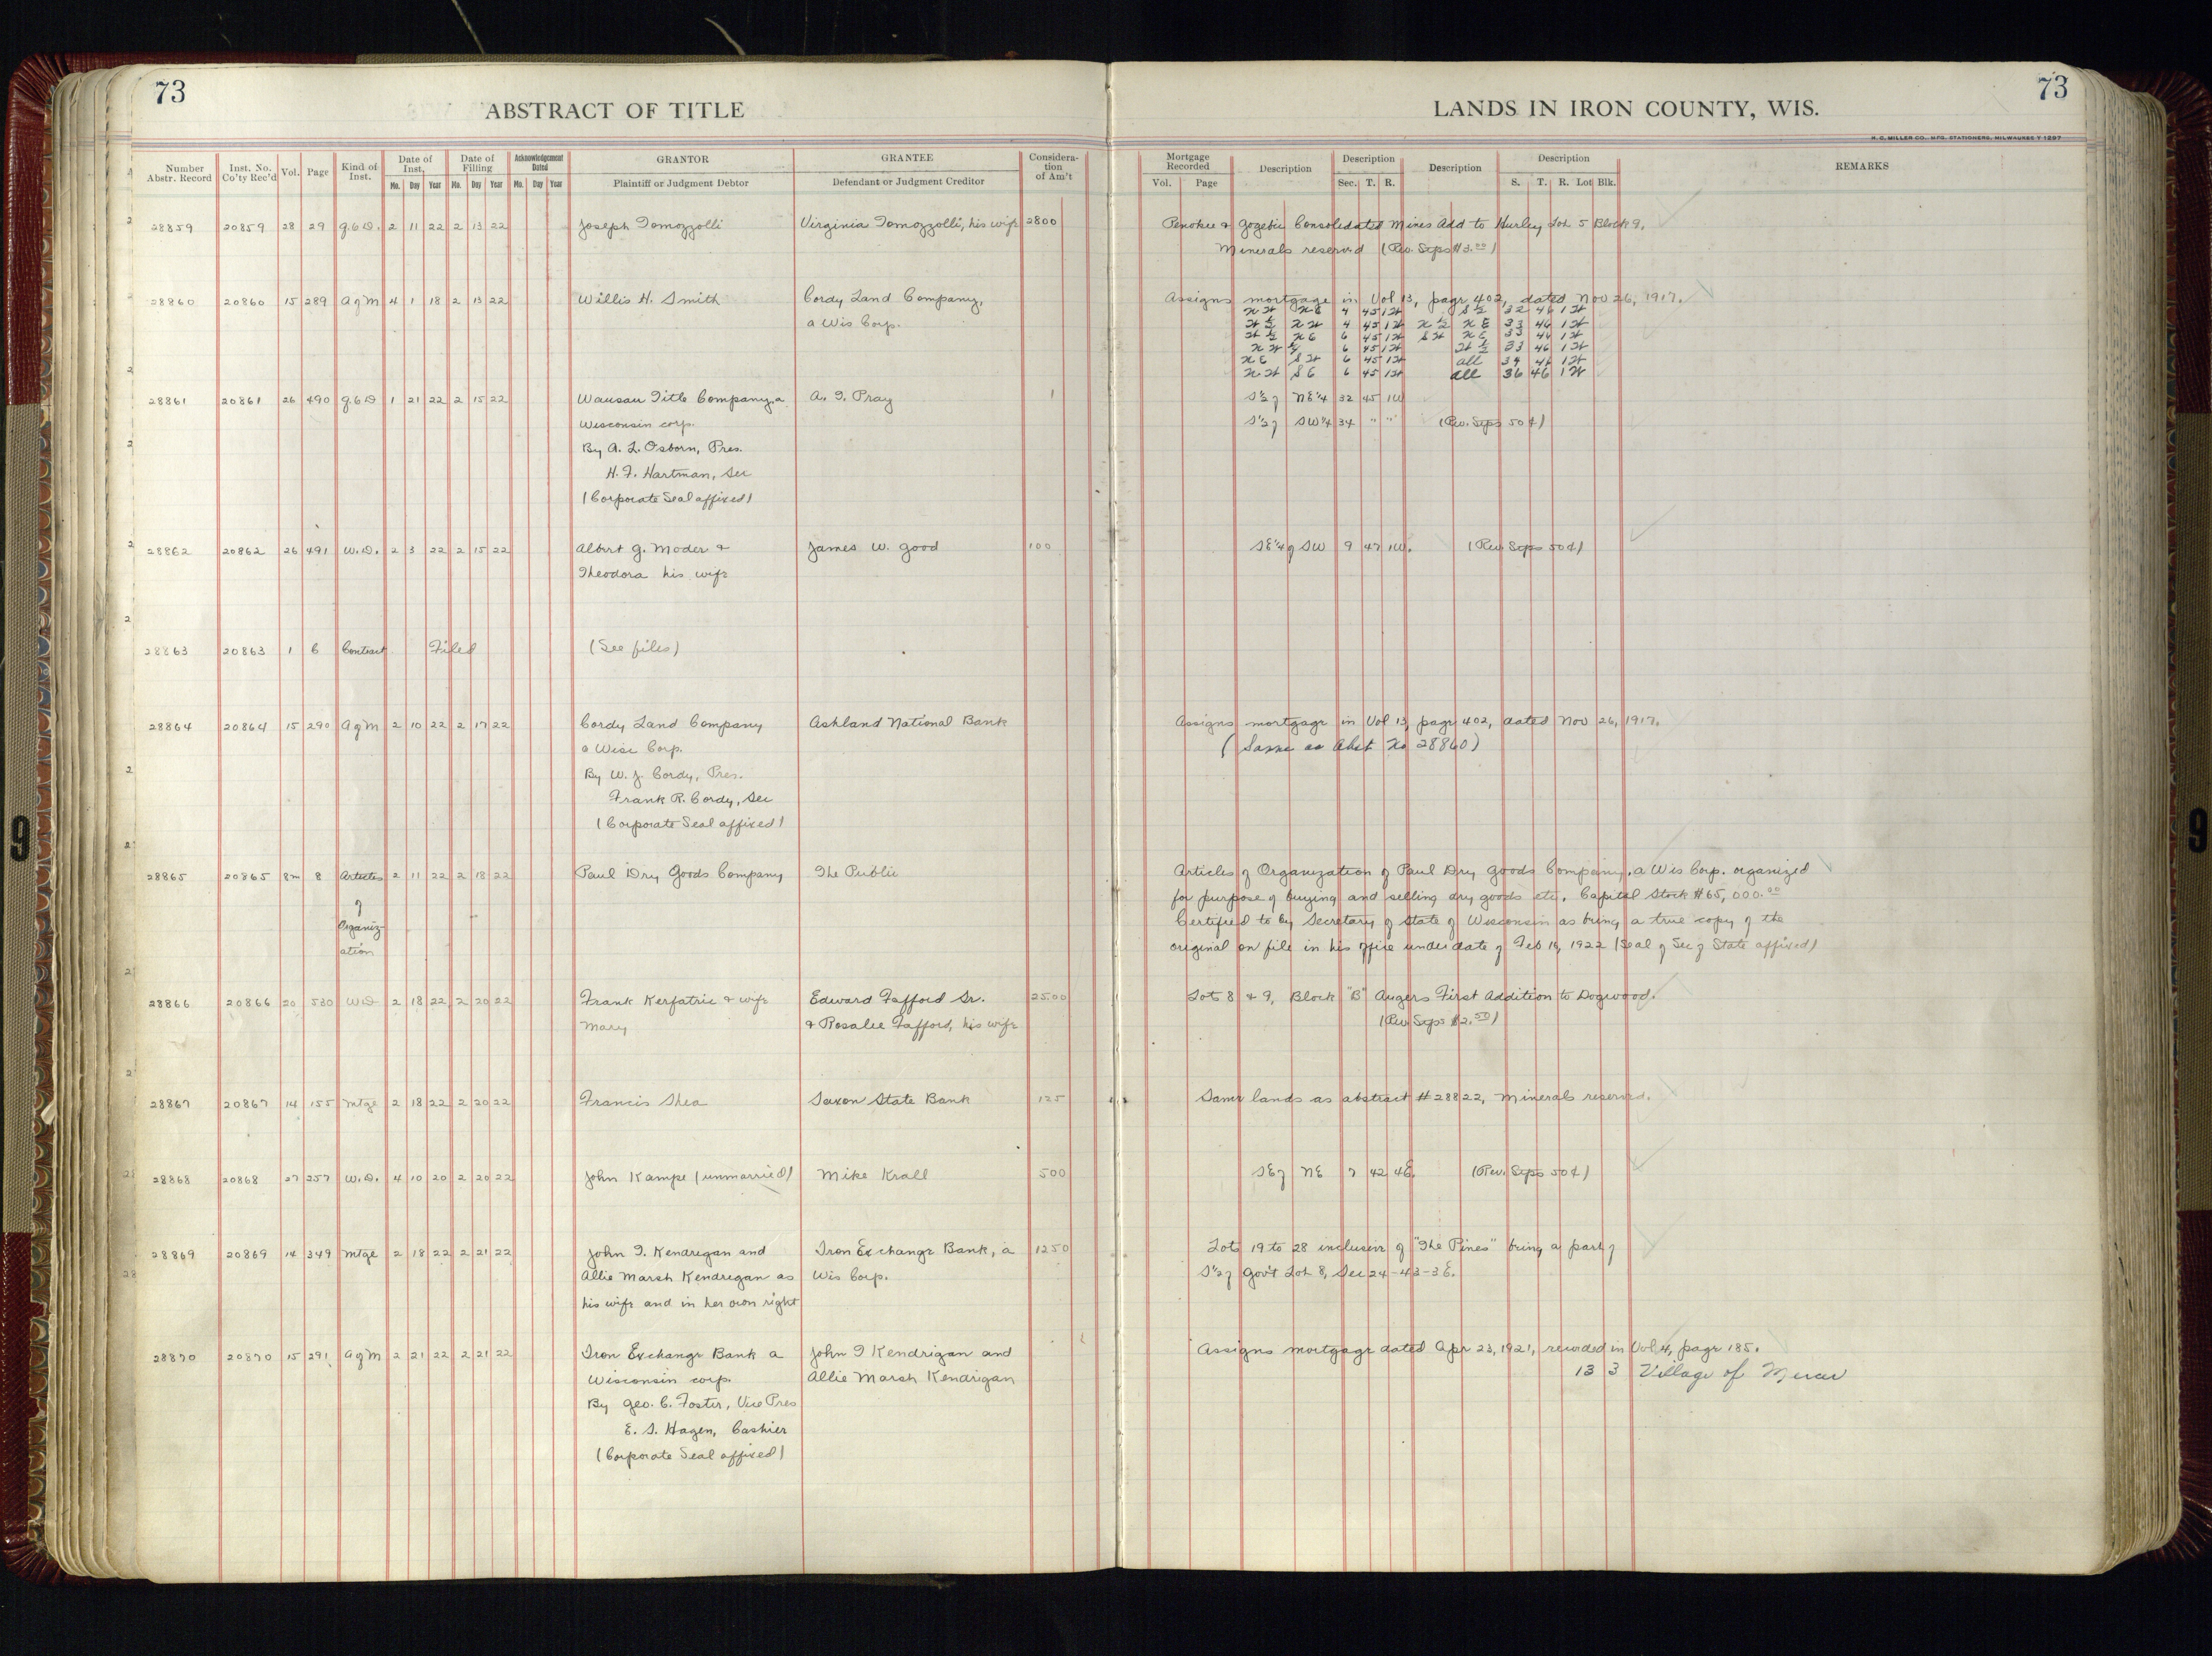 73
ABSTRACT OF TITLE
LANDS IN IRON COUNTY, WIS.
73
H. C. MILLER CO., MFG. STATIONERS, MILWAUKEE
Number Abstr. Record Inst. No. Co'ty Rec'd Vol. Page Kind of Inst. Date of Inst. Date of Filling Acknowledgement Dated GRANTOR GRANTEE Consideration of Am't Mortgage Recorded Description Description Description Description REMARKS
Mo. Day Year Mo. Day Year Mo. Day Year Plaintiff or Judgment Debtor Defendant or Judgment Creditor Vol. Page Sec. T. R. S. T. R. Lot Blk.
28859 20859 28 29 Q.C.D. 2 11 22 2 13 22 Joseph Tomozzolli Virginia Tomozzolli, his wife 2800 Penokee & Gogebic Consolidated Mines Add to Hurley Lot 5 Block 9.
Minerals reserved (Rev. Stps $3.00)
28860 20860 15 289 A of M 4 1 18 2 13 22 Willis H. Smith Cordy Land Company, Assigns mortgage in Vol 13, page 402, dated Nov 26, 1917.
a Wis Corp. NW NE 4 45 1W S½ 32 46 1W
W½ NW 4 45 1W N½ NE 33 46 1W
W½ NE 6 45 1W SW NE 33 46 1W
NW¼ 6 45 1W W½ 33 46 1W
NE SW 6 45 1W all 34 46 1W
NW SE 6 45 1W all 36 46 1W
28861 20861 26 490 Q.C.D 1 21 22 2 15 22 Wausau Title Company, a A. T. Pray 1 S½ of NE¼ 32 45 1W
Wisconsin corp. S½ of SW¼ 34 " " (Rev. Stps 50¢)
By A. L. Osborn, Pres.
H. F. Hartman, Sec
(Corporate Seal affixed)
28862 20862 26 491 W.D. 2 3 22 2 15 22 Albert G. Moder & James W. Good 100 SE¼ of SW 9 47 1W. (Rev. Stps 50¢)
Theodora his wife
28863 20863 1 6 Contract Filed (See files)
28864 20864 15 290 A of M 2 10 22 2 17 22 Cordy Land Company Ashland National Bank Assigns mortgage in Vol 13, page 402, dated Nov 26, 1917.
a Wisc Corp. (Same as Abst No 28860)
By W. J. Cordy, Pres.
Frank R. Cordy, Sec
(Corporate Seal affixed)
28865 20865 8 Articles 2 11 22 2 18 22 Paul Dry Goods Company The Public Articles of Organization of Paul Dry Goods Company, a Wis Corp. organized
of for purpose of buying and selling dry goods etc. Capital Stock $65,000.00
Organiz- Certified to by Secretary of State of Wisconsin as being a true copy of the
ation original on file in his office under date of Feb 16, 1922 (Seal of Sec of State affixed)
28866 20866 20 530 W.D 2 18 22 2 20 22 Frank Kerfatric & wife Edward Fafford Sr. 2500 Lots 8 & 9, Block "B" Angers First Addition to Dogwood.
Mary & Rosalie Fafford, his wife (Rev Stps $2.50)
28867 20867 14 155 Mtge 2 18 22 2 20 22 Francis Shea Saxon State Bank 125 Same lands as abstract #28822, Minerals reserved.
28868 20868 27 257 W.D. 4 10 20 2 20 22 John Kampe (unmarried) Mike Krall 500 SE of NE 7 42 4E. (Rev. Stps 50¢)
28869 20869 14 349 Mtge 2 18 22 2 21 22 John T. Kendrigan and Iron Exchange Bank, a 1250 Lots 19 to 28 inclusive of "The Pines" being a part of
Allie Marsh Kendrigan as Wis Corp. S½ of Gov't Lot 8, Sec 24-43-3E.
his wife and in her own right
28870 20870 15 291 A of M 2 21 22 2 21 22 Iron Exchange Bank a John T Kendrigan and Assigns mortgage dated Apr 23, 1921, recorded in Vol 4, page 185.
Wisconsin corp. Allie Marsh Kendrigan 13 3 Village of Mercer
By Geo. C. Foster, Vice Pres
E. S. Hagen, Cashier
(Corporate Seal affixed)
9
9